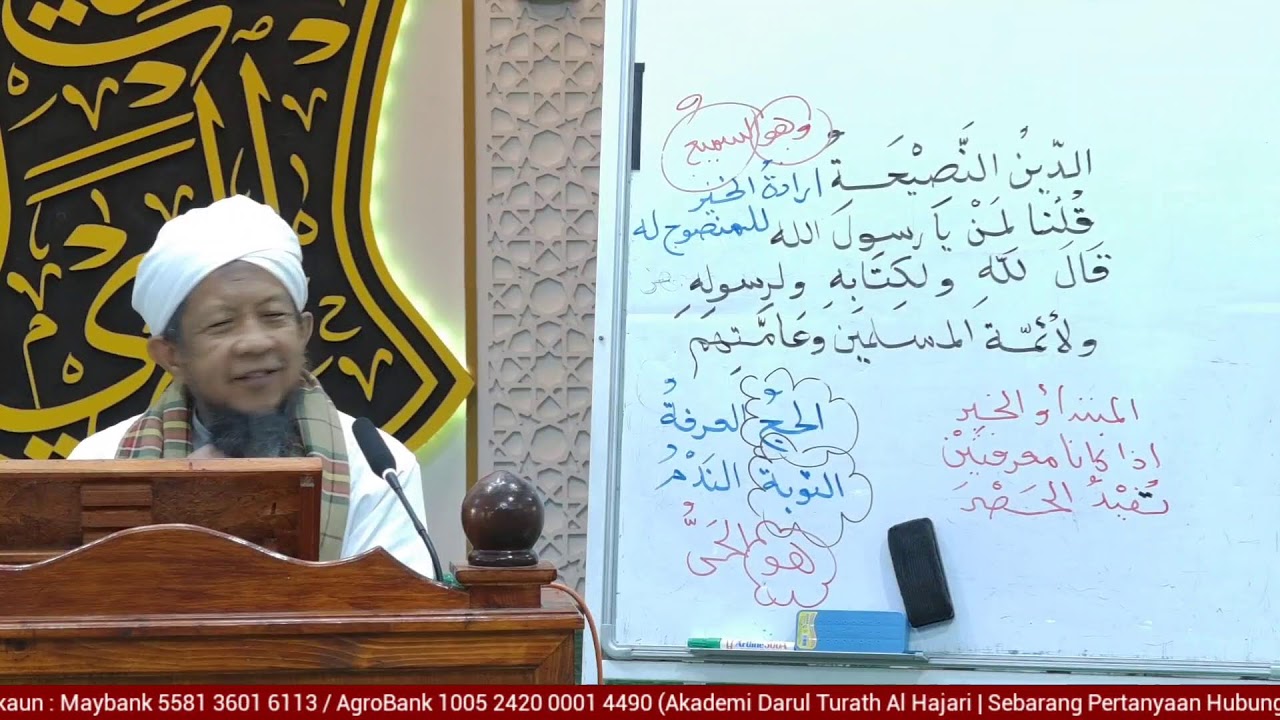 وهو السميع
الدِّينُ النَّصِيْحَةُ
ارادةُ الخير
للمنصوح له
قُلْنا لِمَنْ يَا رسولَ الله
قَالَ للهِ ولكِتَابِهِ ولرسولِهِ
ولأئمّة المسلمين وعَامَّتِهِم
الحجُّ العرفةُ
التوبة النَدْمُ
هو الحَيُّ
المبتدأ والخبر
اذا كانا معرفتَيْن
تُفيْدُ الحَصْرَ
Artline 500A
kaun : Maybank 5581 3601 6113 / AgroBank 1005 2420 0001 4490 (Akademi Darul Turath Al Hajari | Sebarang Pertanyaan Hubung